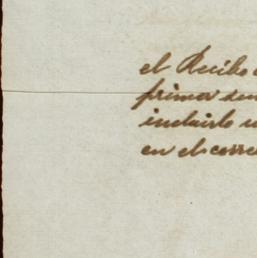 el Recibo
primer
incluirlo
en el corre